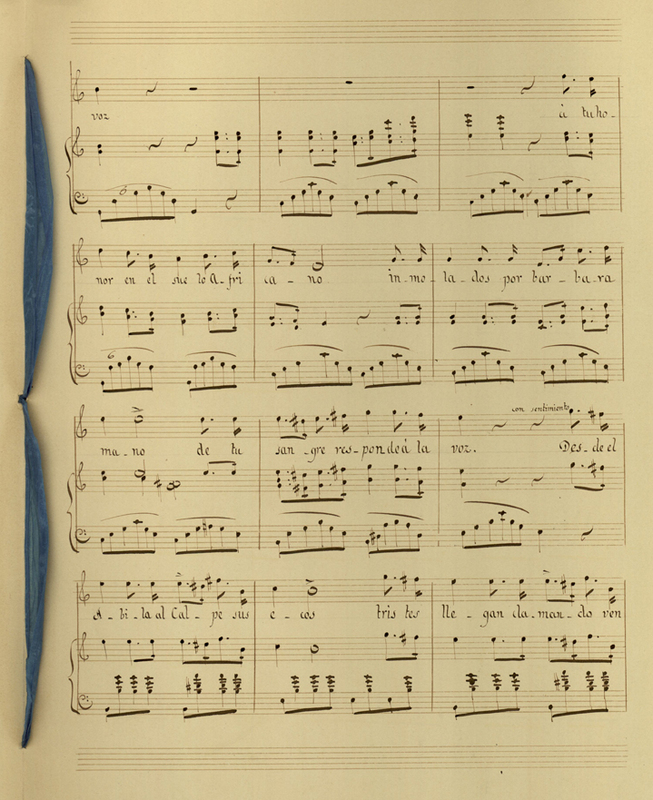 voz à tu ho-
nor en el sue lo A-fri ca-no in-mo-la-dos por bar-ba-ra
ma-no de tu san-gre res-pon de à la voz. Des-de el
con sentimiento
A-bi-la al Cal-pe sus e-cos tris tes lle-gan cla-man-do ven